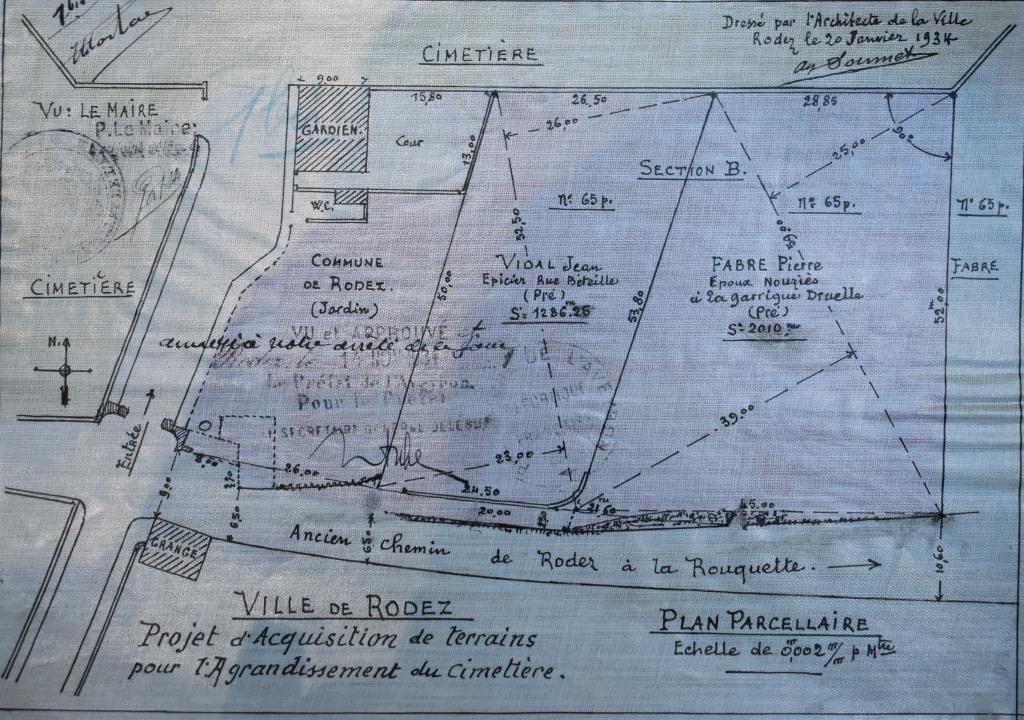 Dressé par l'Architecte de la Ville
Rodez le 20 Janvier 1934
CIMETIÈRE
VU: LE MAIRE
P. Le Maire:
9,00
15,80
26,50
28,85
GARDIEN.
Cour
13,00
26,00
90°
25,00
SECTION B.
W.C.
52,50
Nº 65 p.
Nº 65 p.
Nº 65 p.
59,00
CIMETIÈRE
COMMUNE
DE RODEZ.
(Jardin)
50,00
VIDAL Jean
Epicier Rue Béteille
(Pré)
S= 1286.25
53,80
FABRE Pierre
Epoux Nougiès
à La garrigue Druelle
(Pré)
S= 2010
FABRE
52,00
N.
VU et APPROUVÉ
annexé à notre arrêté de ce jour
Rodez, le
Le Préfet de l'Aveyron.
Pour le Préfet
SECRETAIRE GENERAL DELEGUE
Entrée
39,00
8,00
26,00
23,00
24,50
20,00
45,00
9,00
6,50
6,50
10,60
GRANGE
Ancien chemin de Rodez à la Rouquette.
VILLE DE RODEZ
Projet d'Acquisition de terrains
pour l'Agrandissement du Cimetière.
PLAN PARCELLAIRE
Echelle de 0,002 m/m p Mtre